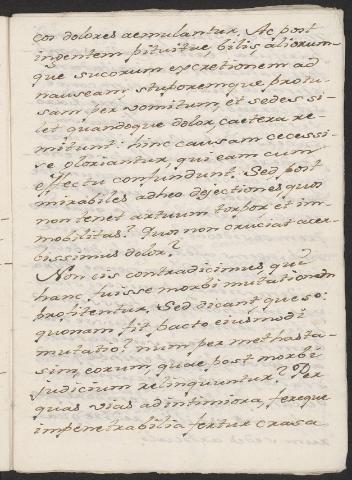 cos dolores aemulantur. Ac post
ingentem pituitae, bilis, aliorum-
que sucorum excretionem ad
nauseam stuporemque profu-
sam per vomitum, et sedes si-
let quandoque dolor, caetera re-
mitunt: hinc causam cecessi-
se gloriantur, qui eam cum
effectu confundunt. Sed, post
mirabiles adheo dejectiones quos
non tenet artuum torpor et im-
mobilitas? Quos non cruciat acer-
bissimus dolor?
Non eis contradicimus, qui
hanc fuisse morbi mutationem
profitentur. Sed dicant queso:
quonam fit pacto eiusmodi
mutatio? num per methasta-
sim, eorum, quae post morbi
judicium relinquuntur? Per
quas vias ad intimiora, fereque
impenetrabilia fertur crassa